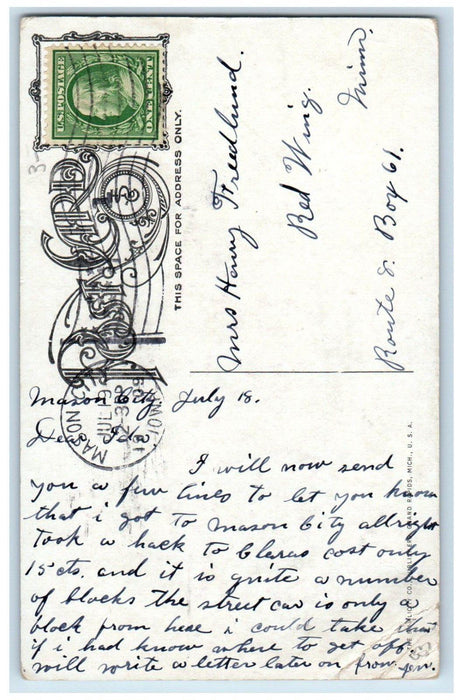 U.S. POSTAGE
ONE CENT
POST CARD
THIS SPACE FOR ADDRESS ONLY.
Mrs Harry Freedlund.
Red Wing.
Minn.
Route 2. Box 61.
MASON CITY
JUL 19
2-30 P
IOWA
Mason City July 18.
Dear Ida
I will now send
you a few lines to let you know
that i got to Mason City allright
took a hack to Claras cost only
15 cts. and it is quite a number
of blocks the street car is only a
block from here i could take that
if i had know where to get off.
will write a letter later on from
GRAND RAPIDS, MICH., U. S. A.